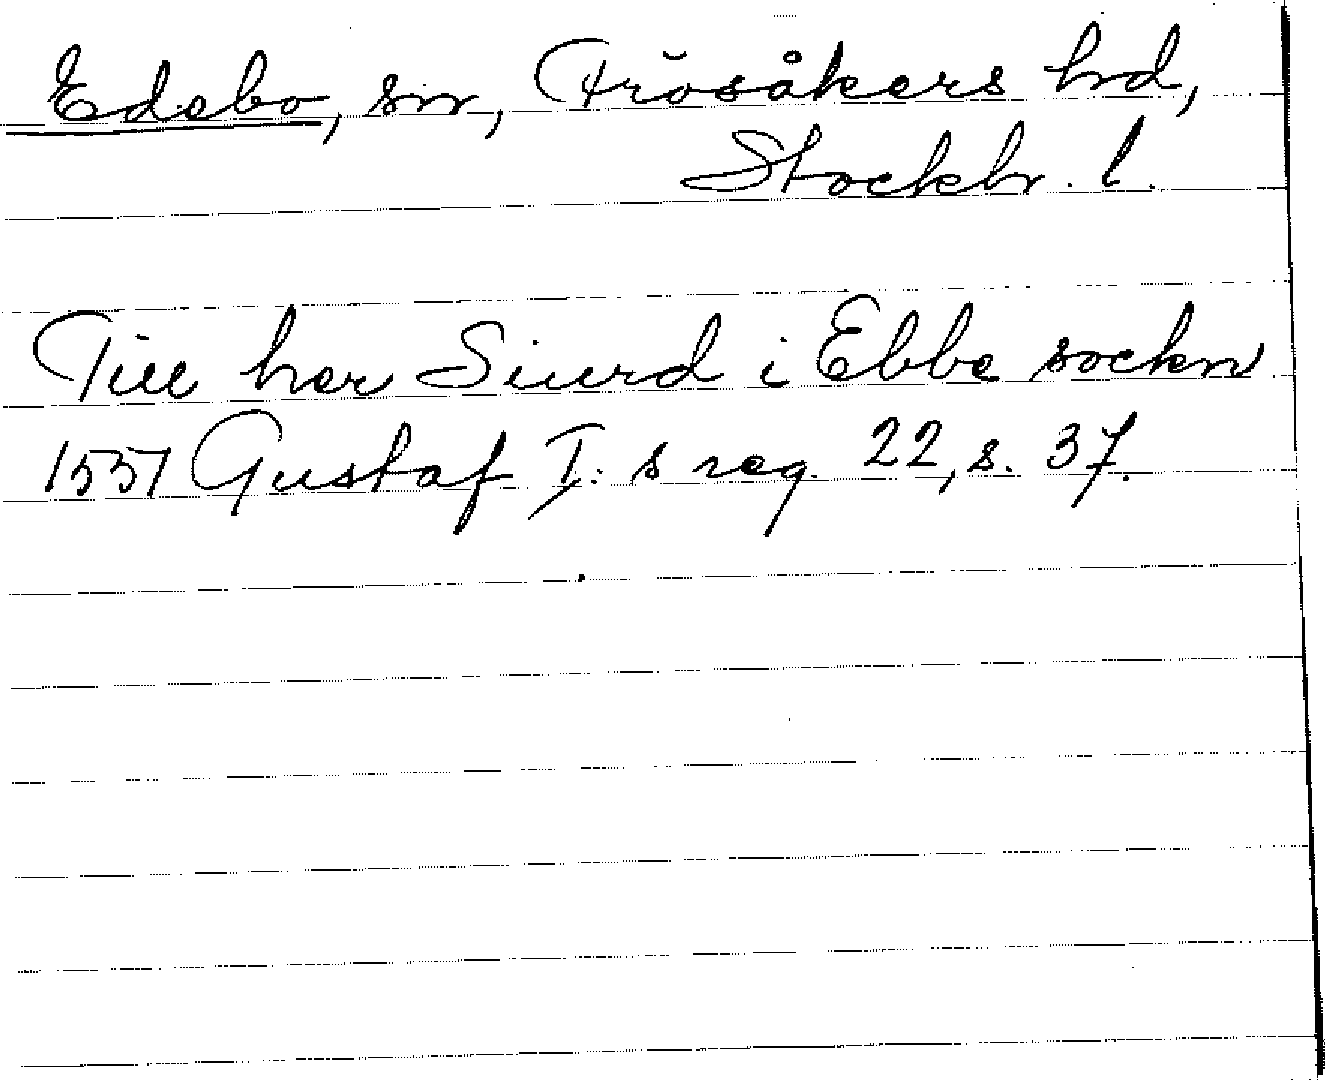 Edebo, sn, Frösåkers hd,
Stockh. l.
Till her Siurd i Ebbe sockn
1551 Gustaf I:s reg. 22, s. 37.